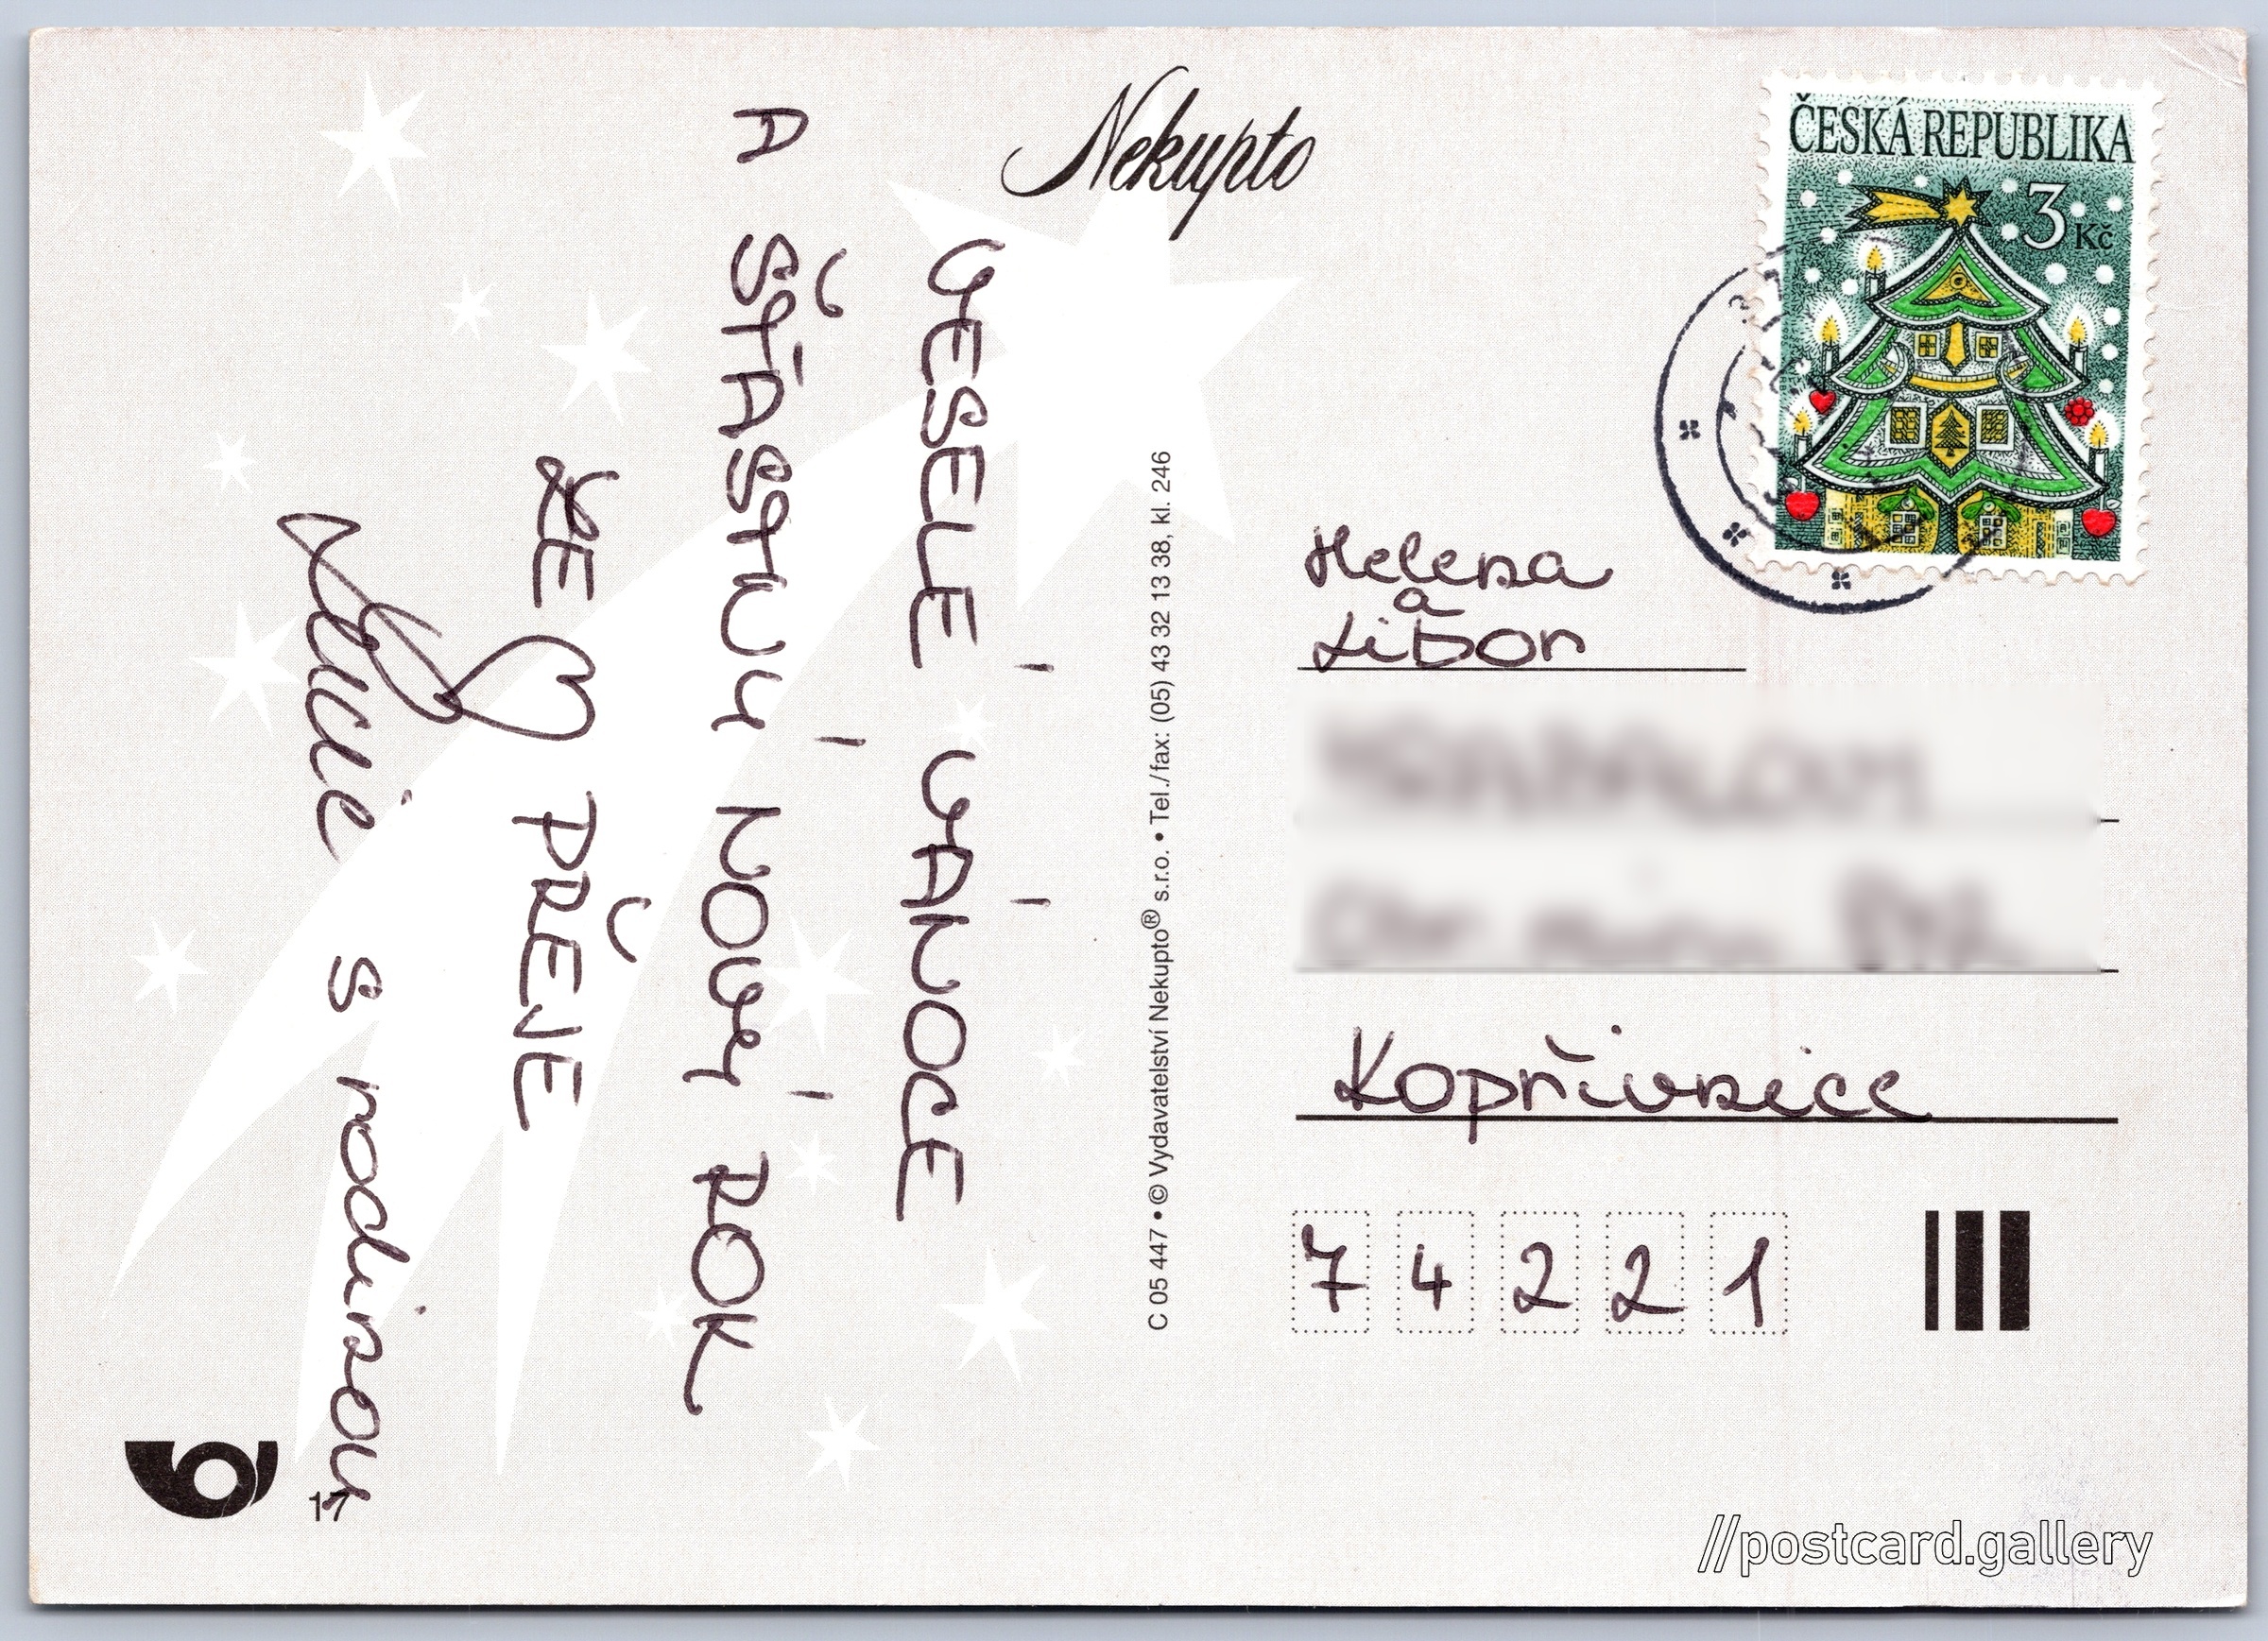 Nekupto
VESELÉ VÁNOCE
A ŠŤASTNÝ NOVÝ ROK
ZE ♡ PŘEJE
Lucie s rodinou
17
C 05 447 • © Vydavatelství Nekupto® s.r.o. • Tel./fax: (05) 43 32 13 38, kl. 246
ČESKÁ REPUBLIKA
3 Kč
Helena
a
Libor
Kopřivnice
74221
//postcard.gallery